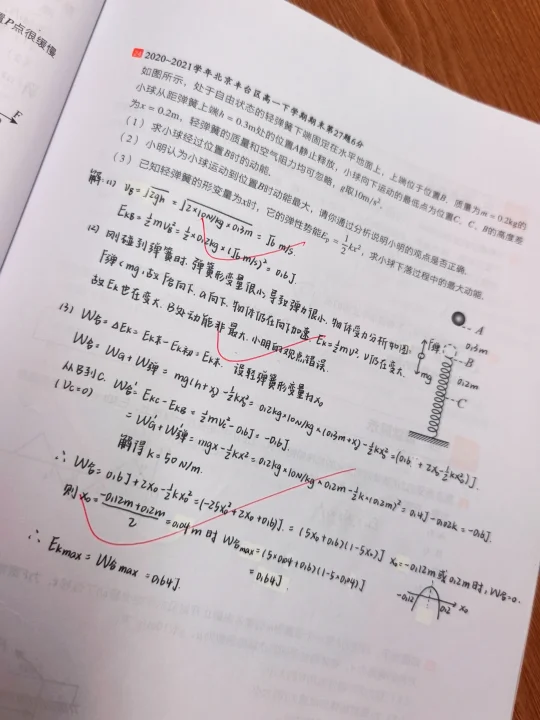 置P点很缓慢
F
24 2020-2021学年北京丰台区高一下学期期末第27题6分
如图所示，处于自由状态的轻弹簧下端固定在水平地面上，上端位于位置B，质量为m = 0.2kg的
小球从距弹簧上端h = 0.3m处的位置A静止释放，小球向下运动的最低点为位置C，C、B的高度差
为x = 0.2m，轻弹簧的质量和空气阻力均可忽略，g取10m/s².
（1） 求小球经过位置B时的动能.
（2） 小明认为小球运动到位置B时动能最大，请你通过分析说明小明的观点是否正确.
（3） 已知轻弹簧的形变量为x时，它的弹性势能Eₚ = 1/2 kx²，求小球下落过程中的最大动能.
解: (1) v_B = √2gh = √2×10N/kg×0.3m = √6 m/s.
E_KB = 1/2 mv_B² = 1/2×0.2kg×(√6 m/s)² = 0.6J.
(2) 刚碰到弹簧时, 弹簧形变量很小, 导致弹力很小. 物体受力分析如图:
F弹<mg, 故F合向下. a向下. 物体仍在向下加速. E_K = 1/2 mv², v仍在变大.
故E_K也在变大. B处动能非最大. 小明的观点错误.
(3) W合 = ΔE_K = E_K末 - E_K初 = E_K末. 设轻弹簧形变量为x₀
W合 = W_G + W弹 = mg(h+x₀) - 1/2 kx₀² = 0.2kg×10N/kg×(0.3m+x₀) - 1/2 kx₀² = (0.6 + 2x₀ - 1/2 kx₀²) J.
从B到C. W合' = E_KC - E_KB = 1/2 mv_C² - 0.6J = -0.6J.
(v_C=0)
= W_G' + W弹' = mgx - 1/2 kx² = 0.2kg×10N/kg×0.2m - 1/2 k×(0.2m)² = 0.4J - 0.02k = -0.6J.
解得 k = 50 N/m.
∴ W合 = 0.6J + 2x₀ - 1/2 kx₀² = (-25x₀² + 2x₀ + 0.6)J. = (5x₀+0.6)(1-5x₀)J x₀ = -0.12m 或 0.2m 时, W合=0.
则 x₀ = (-0.12m + 0.2m)/2 = 0.04 m 时 W合max = (5×0.04+0.6)(1-5×0.04)J
= 0.64J.
∴ E_Kmax = W合max = 0.64J.
A
0.3m
F弹
B
mg
0.2m
C
-0.12
0.2
x₀